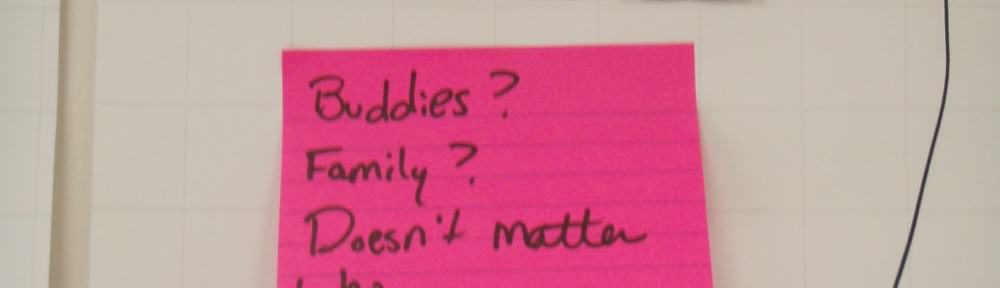 Buddies?
Family?
Doesn't matter